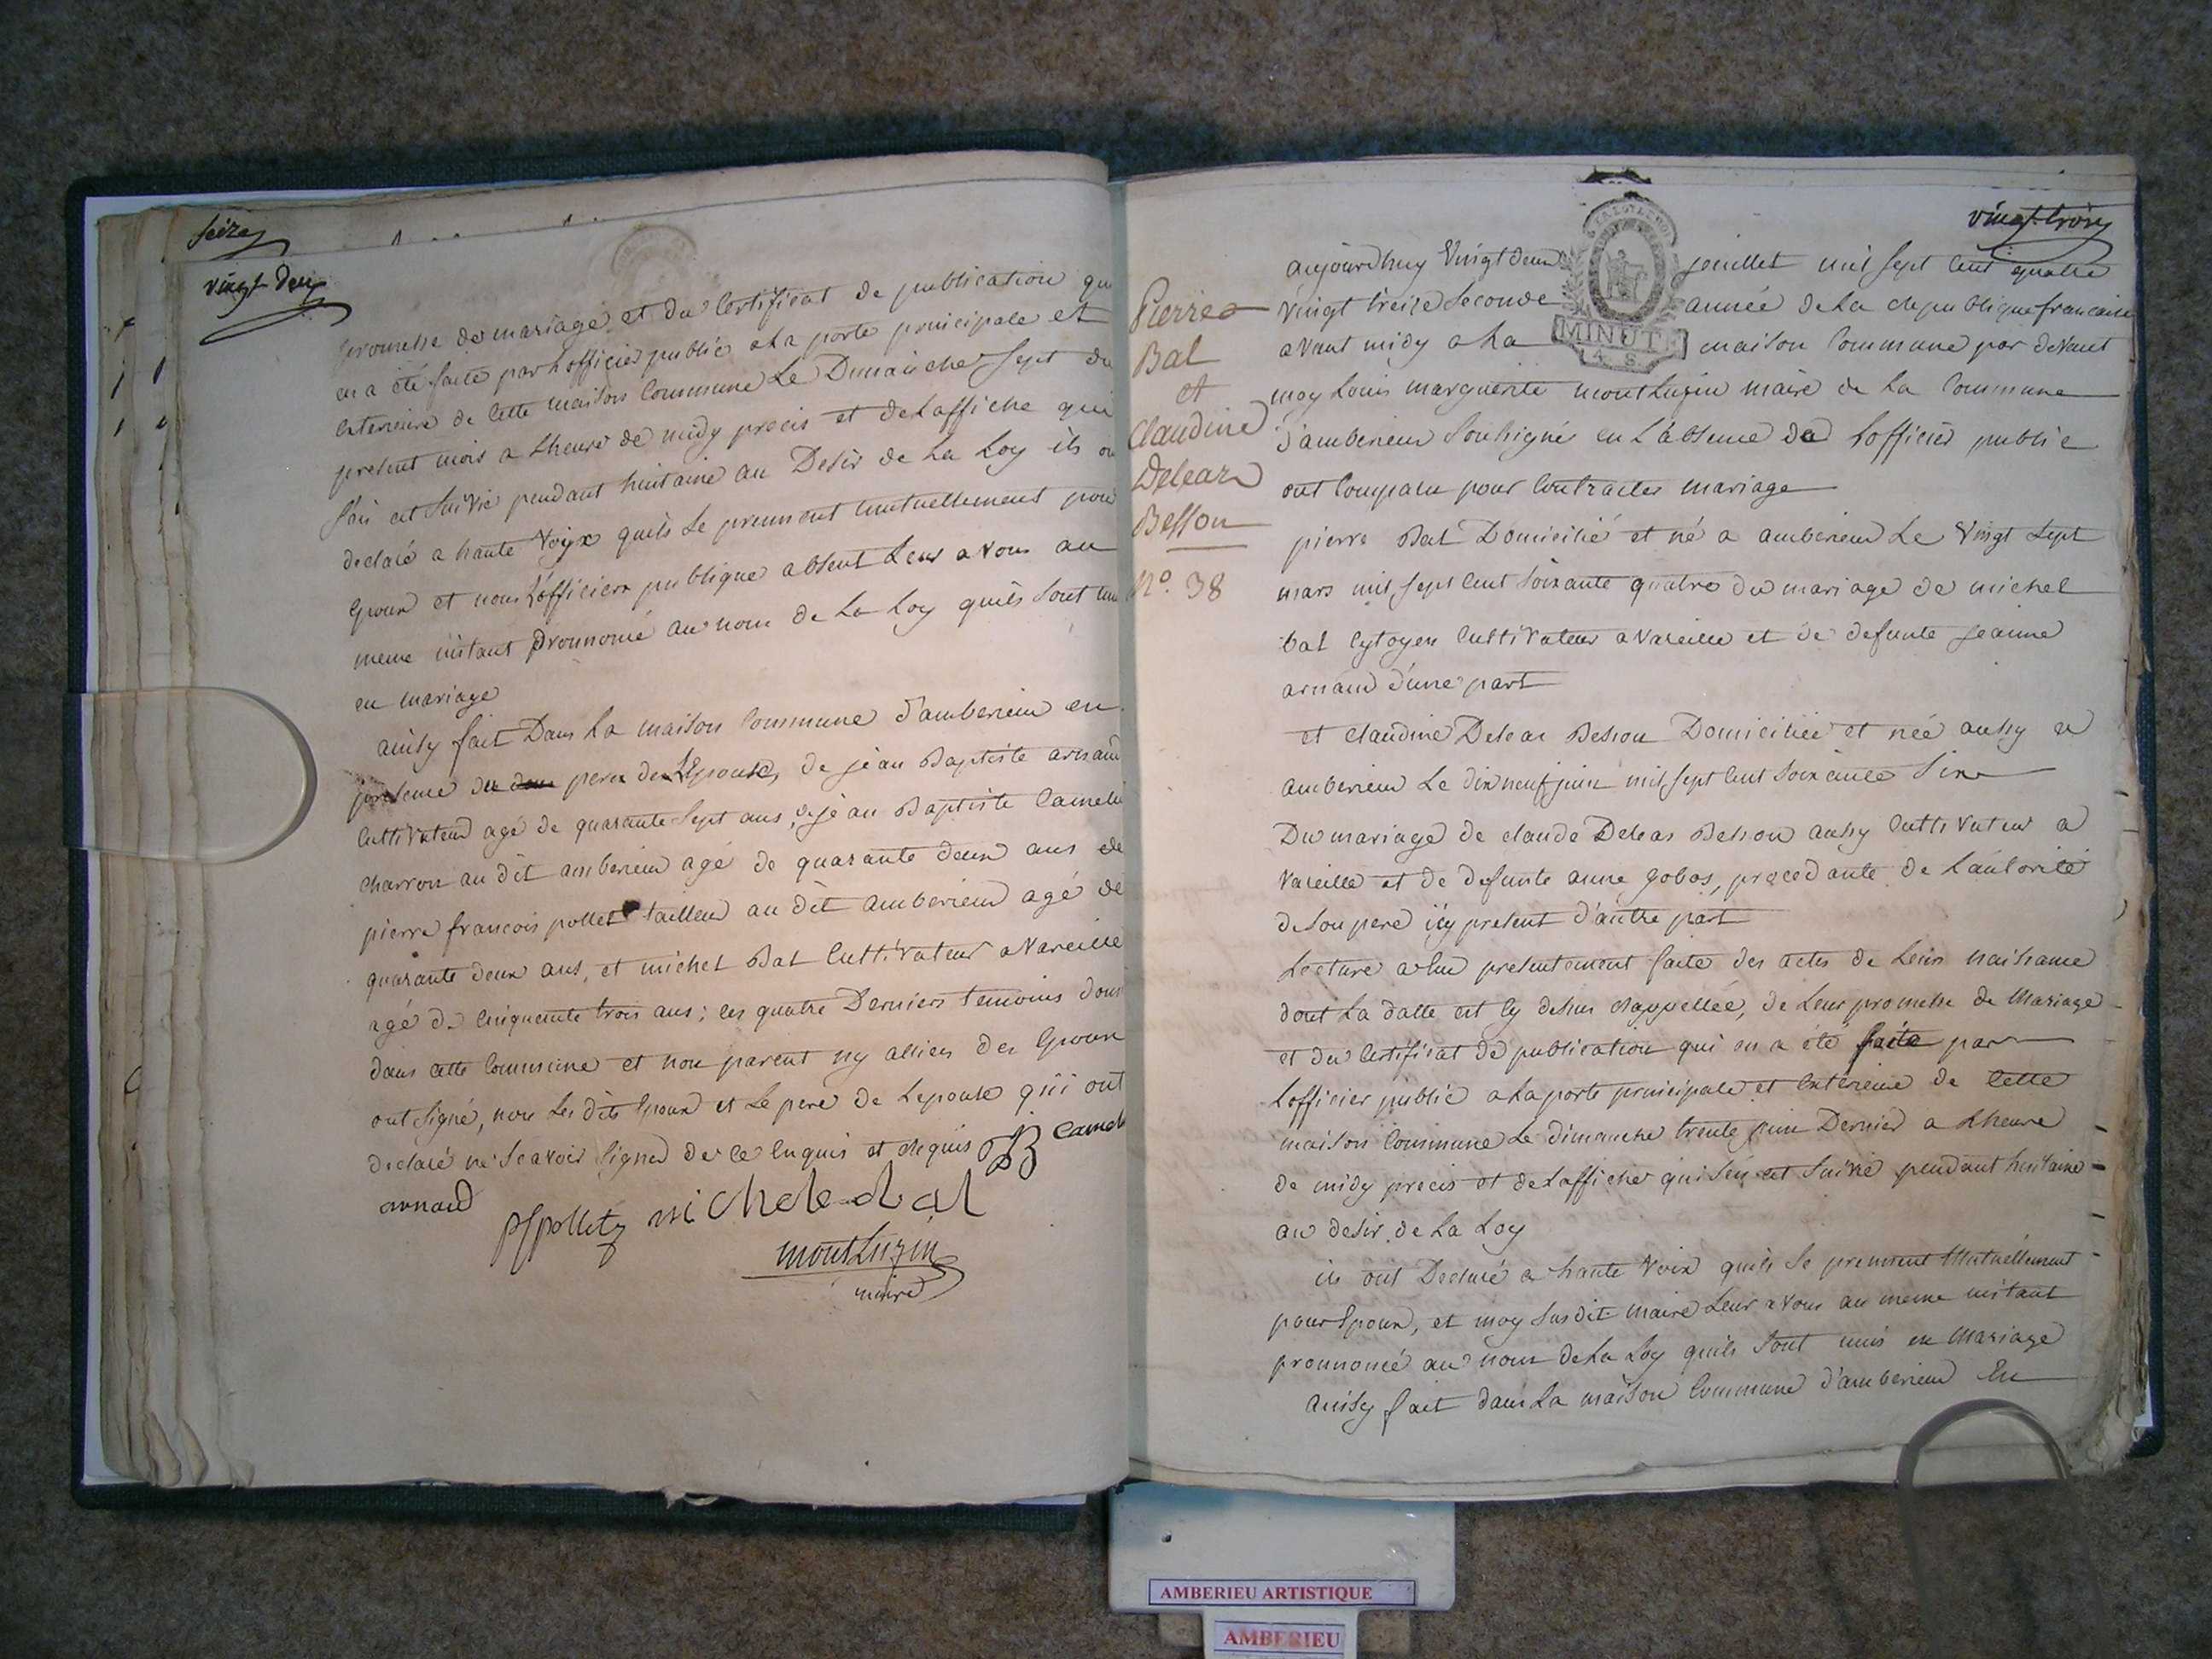 seize
vingt Deux
promesse de mariage et du Certificat de publication qui
en a été faite par Lofficier public a La porte principale et
exterieure de Cette maison Commune Le Dimanche sept du
present mois a Lheure de midy precis et de Laffiche qui
sen est suivie pendant huitaine au Desir de La Loy ils on
declaré a haute Voyx quils se prennent mutuellement pour
Epoux et nous Lofficier publique absent Leur avons au
meme instant prononcé au nom de La Loy quils sont unis
en mariage
ainsy fait Dans La maison Commune d'amberieu en
presence du pere de L'Epouse, de jean Baptiste arnaud
Cultivateur agé de quarante sept ans, de jean Baptiste Camelin
charron au dit amberieu agé de quarante deux ans de
pierre francois pollet tailleur au dit amberieu agé de
quarante deux ans, et michel Bal Cultivateur a Vareille
agé de Cinquante trois ans; les quatre Derniers temoins dom
dans cette Commune et non parent ny alliers des Epoux
ont signé, non Les dits Epoux et Le pere de Lepouse qui ont
declaré ne Scavoir signer de ce Enquis et Requis JB Camelin
arnaud
pfpollet michel bal
montLuzin
maire
vingt trois
Pierre
Bal
et
Claudine
Deleaz
Besson
N.° 38
MINUTE
4. S.
aujourdhuy Vingt deux juillet mil sept Cent quatre
Vingt treize seconde année de La Republique francaise
avant midy a La maison Commune par devant
moy Louis marguerite montLuzin maire de La Commune
d'amberieu soussigné en L'absence de Lofficier public
ont Comparu pour Contracter mariage
pierre Bal Domicilié et né a amberieu Le Vingt sept
mars mil sept Cent soixante quatre du mariage de michel
bal Cytoyen Cultivateur a Vareille et de defunte jeanne
arnaud d'une part
et claudine Deleas Besson Domiciliée et née aussy a
amberieu Le dix neuf juin mil sept Cent soixante six
Du mariage de claude Deleas Besson aussy Cultivateur a
Vareille et de defunte anne gobos, procedante de Lautorité
de son pere icy present d'autre part
Lecture a Eue presentement faite des actes de Leurs naissance
dont La datte est Cy dessus Rappellée, de Leur promesse de Mariage
et du Certificat de publication qui en a été faite par
Lofficier public a La porte principale et Exterieure de Cette
maison Commune Le dimanche trente juin Dernier a Lheure
de midy precis et de Laffiche qui sen est suivie pendant huitaine
au desir de La Loy
ils ont Declaré a haute Voix quils se prennent Mutuellement
pour Epoux, et moy susdit maire Leur avons au meme instant
prononcé au nom de La Loy quils sont unis en Mariage
ainsy fait dans La maison Commune d'amberieu En
AMBERIEU ARTISTIQUE
AMBERIEU